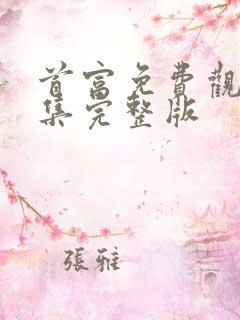 首富免費觀
集完整版
張雅